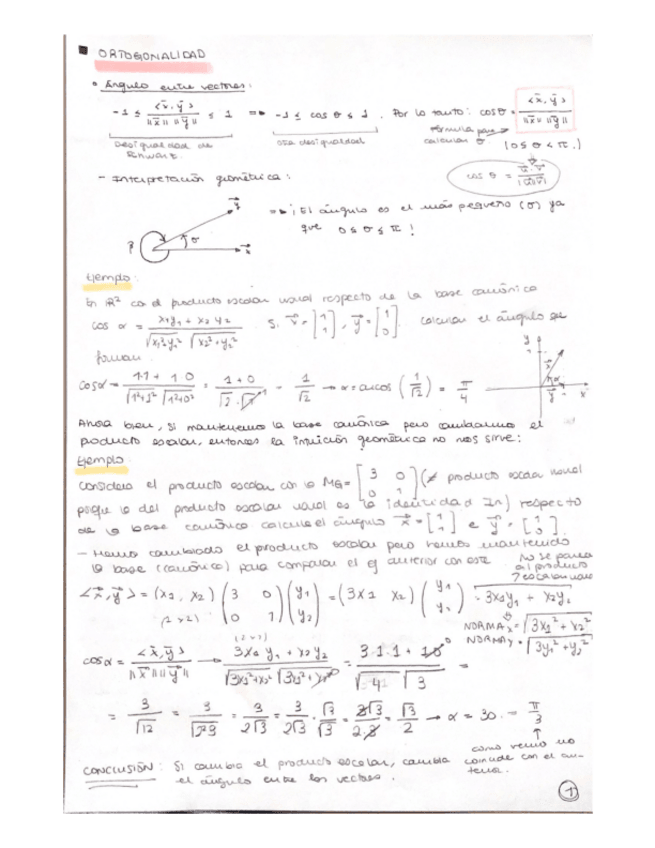 ORTOGONALIDAD
• Ángulo entre vectores:
-1 ≤ <x̄, ȳ> / ||x̄|| ||ȳ|| ≤ 1 ⇒ -1 ≤ cos θ ≤ 1. Por lo tanto: cos θ = <x̄, ȳ> / ||x̄|| ||ȳ||
Desigualdad de otra desigualdad fórmula para calcular θ (0 ≤ θ ≤ π.)
- Interpretación geométrica:
cos θ = ū · v̄ / |ū||v̄|
⇒ ¡El ángulo es el más pequeño (σ) ya
que 0 ≤ σ ≤ π!
Ejemplo:
En R² con el producto escalar usual respecto de la base canónica
cos α = x₁y₁ + x₂y₂ / √x₁²+y₁² √x₂²+y₂² Si v̄ = [1 1], ȳ = [1 0]. calcular el ángulo que
forman
cos α = 1·1 + 1·0 / √1²+1² √1²+0² = 1+0 / √2 · √1 = 1/√2 → α = arcos (1/√2) = π/4
Ahora bien, si mantenemos la base canónica pero cambiamos el
producto escalar, entonces la intuición geométrica no nos sirve:
Ejemplo
Considera el producto escalar con la MG = [3 0 0 1] (≠ producto escalar usual
porque la del producto escalar usual es la identidad In) respecto
de la base canónica calcula el ángulo x̄ = [1 1] e ȳ = [1 0].
- Hemos cambiado el producto escalar pero hemos mantenido
la base (canónica) para comparar el ej anterior con este.
No se parece
al producto
escalar usual
<x̄, ȳ> = (x₁, x₂) (3 0 0 1) (y₁ y₂) = (3x₁ x₂) (y₁ y₂) = 3x₁y₁ + x₂y₂
(2x2)
(2x1)
NORMA x = √3x₁² + x₂²
NORMA y = √3y₁² + y₂²
cos α = <x̄, ȳ> / ||x̄|| ||ȳ|| → 3x₁y₁ + x₂y₂ / √3x₁²+x₂² √3y₁²+y₂² = 3·1·1 + 1·0 / √4 √3 =
= 3/√12 = 3/√2²3 = 3/2√3 = 3/2√3 · √3/√3 = 3√3/2·3 = √3/2 → α = 30. = π/3
como vemos no
coincide con el an-
terior.
CONCLUSIÓN: Si cambia el producto escalar, cambia
el ángulo entre los vectores.
1